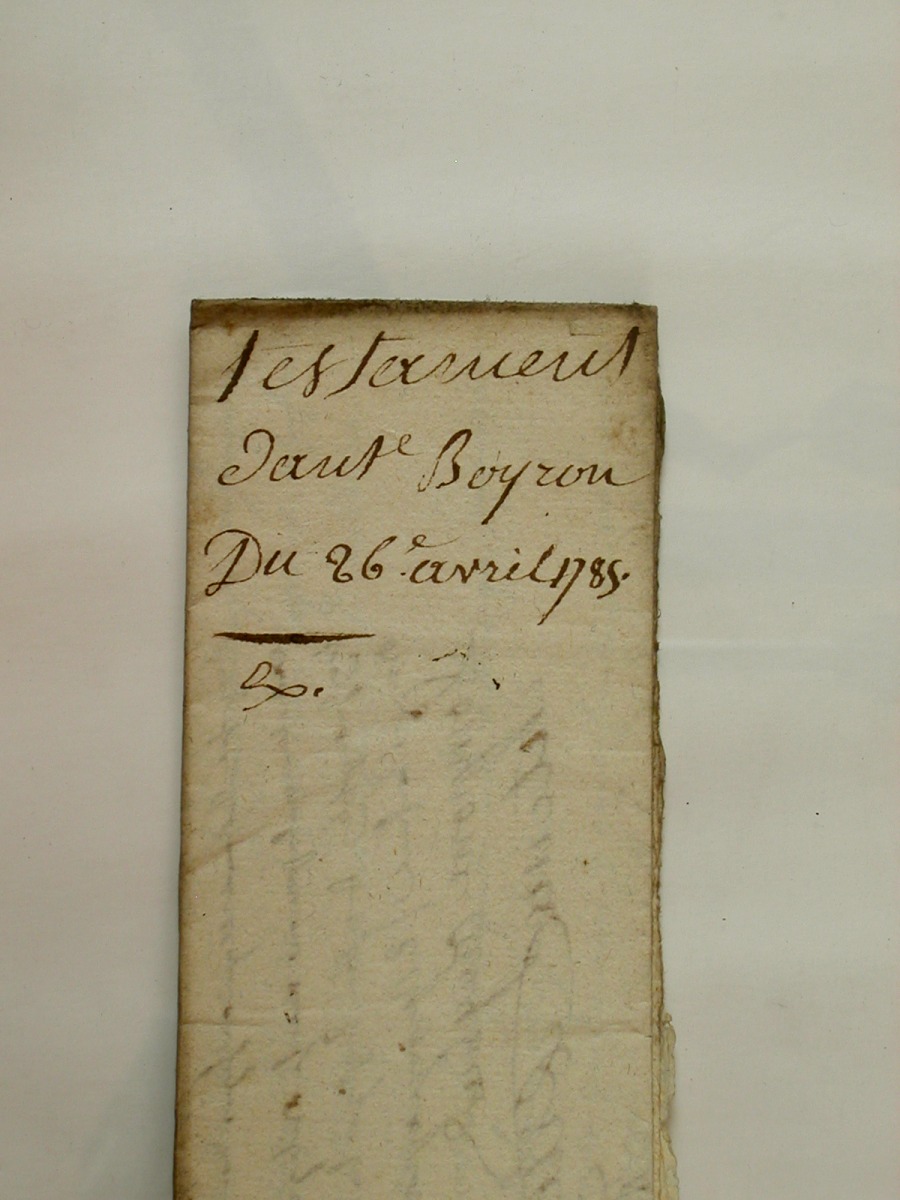 Testament
Dant.e Boyron
Du 26.e avril 1785.
Ex.